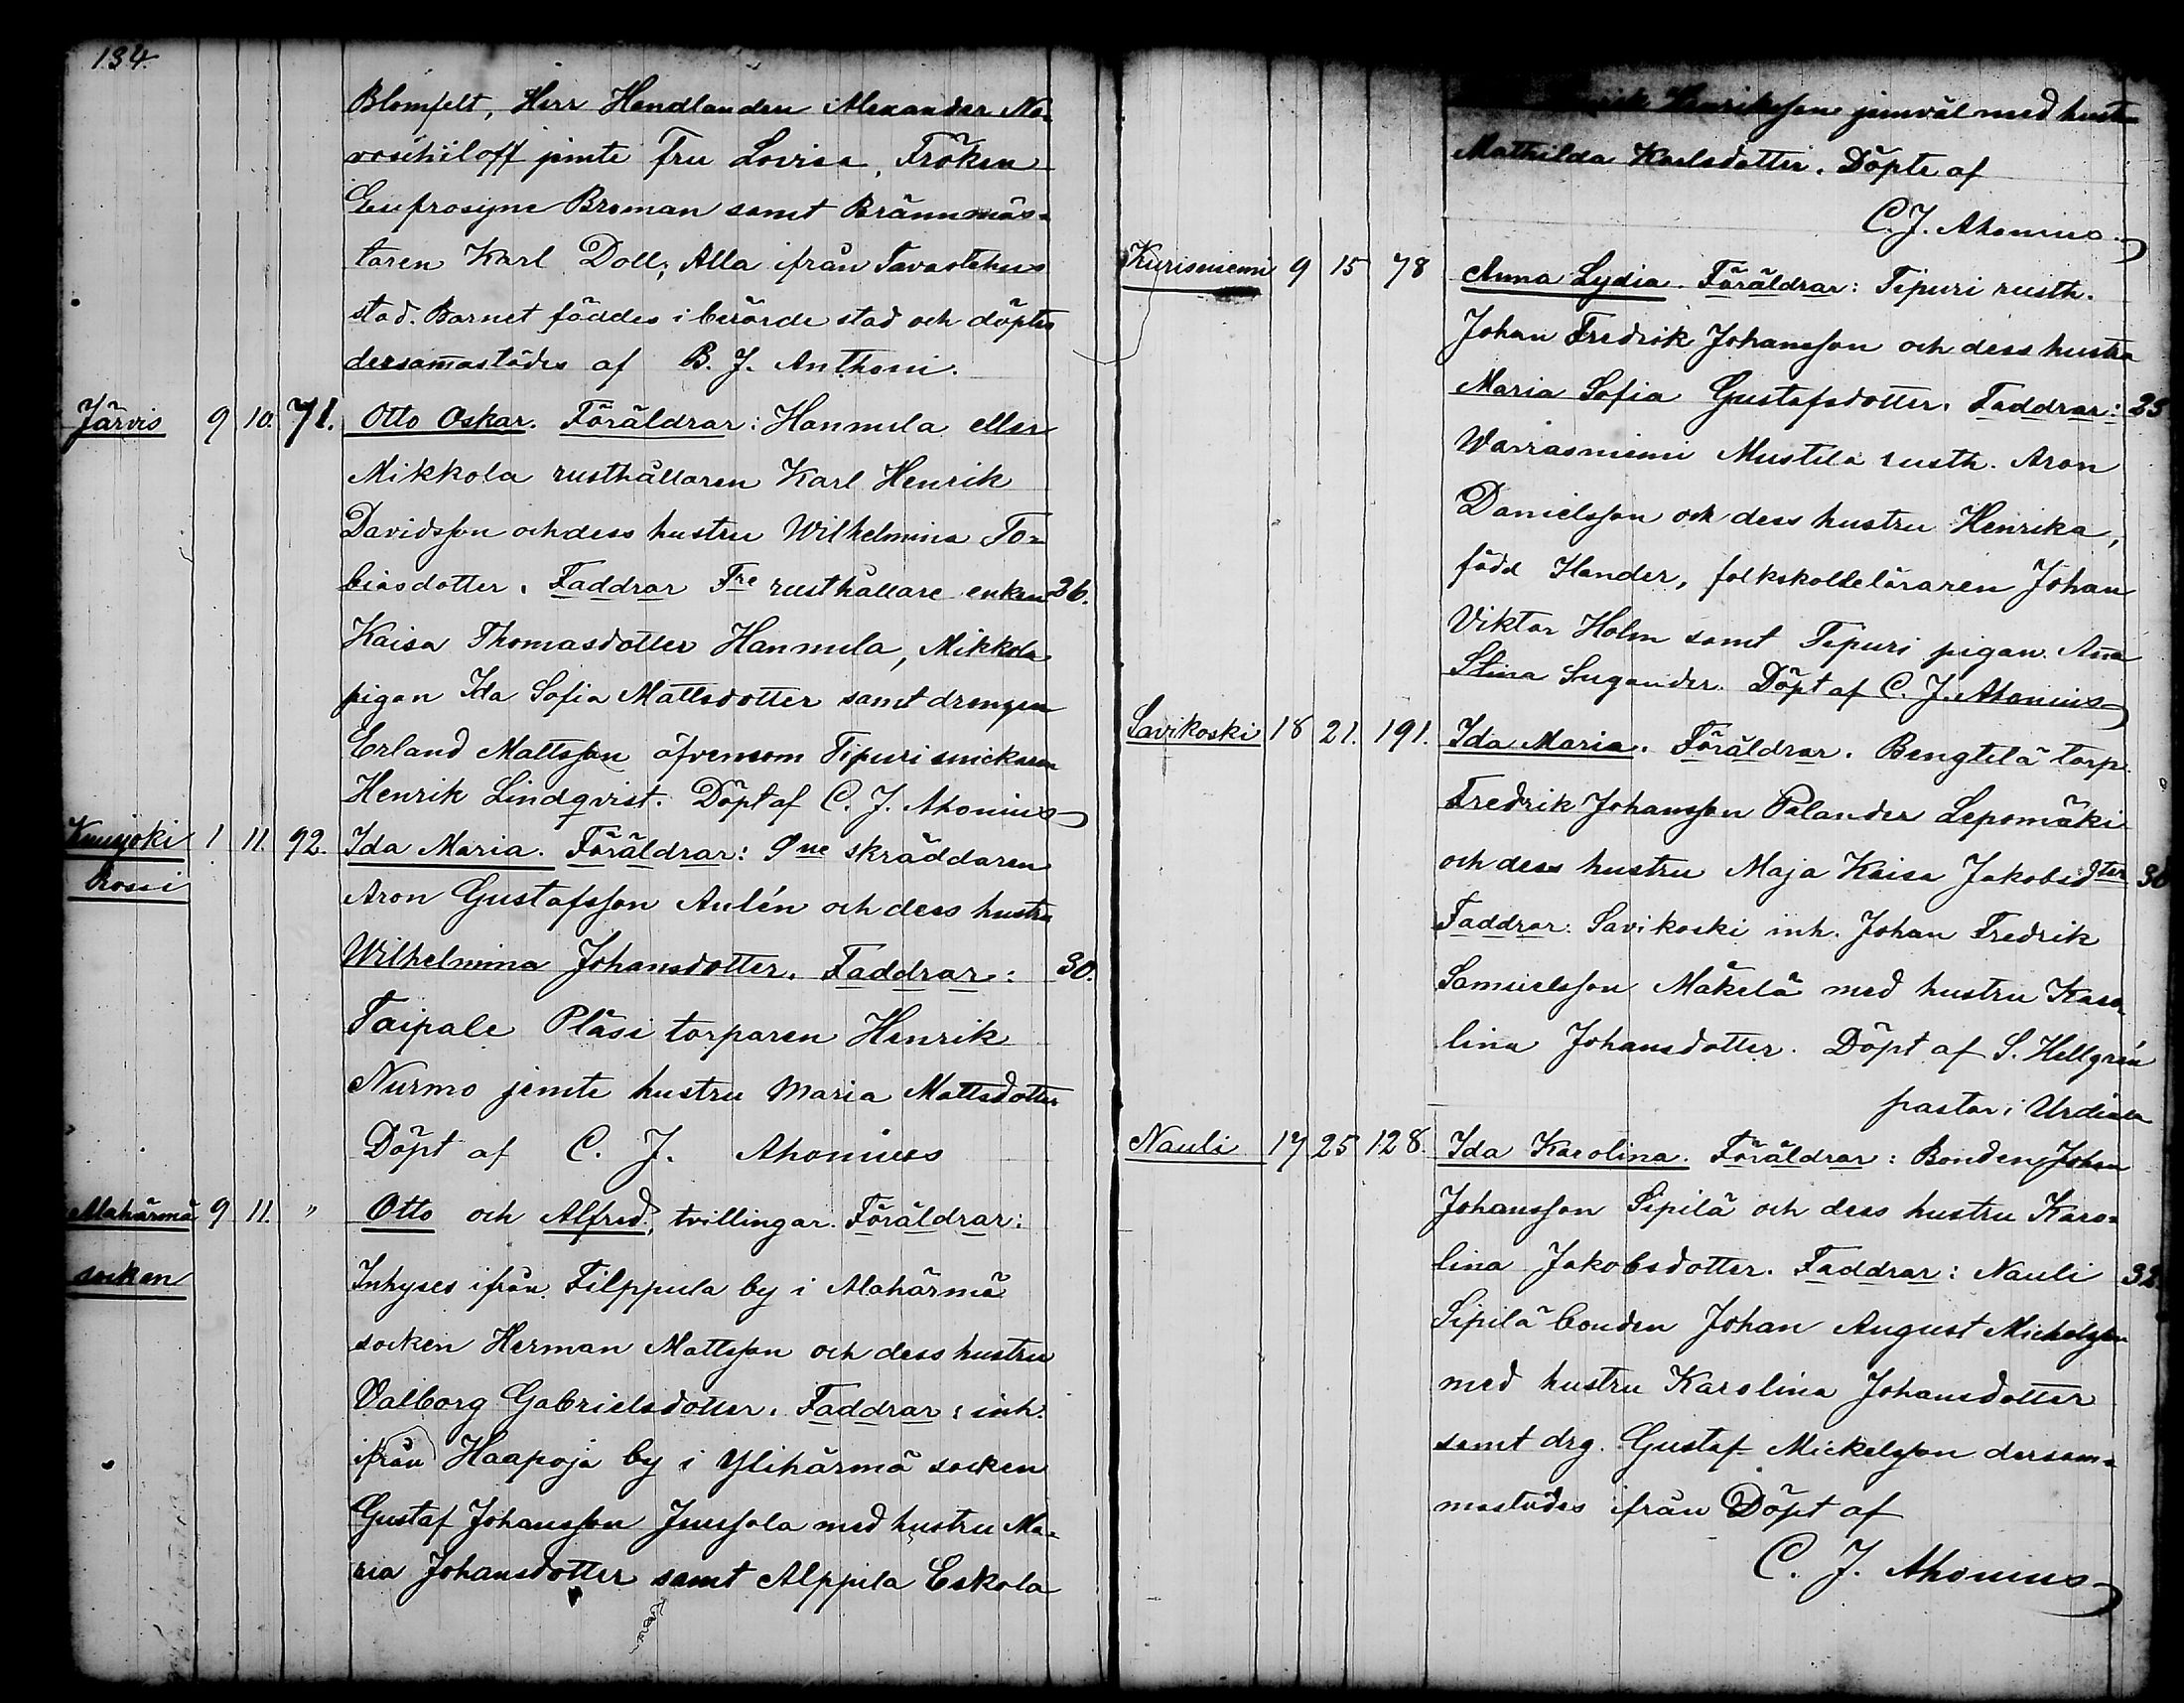 134.
Blomfelt, Herr Handlanden Alexander No-
voschiloff jemte Fru Lovisa, Fröken
Eufrosyne Broman samt Brännmäs-
taren Karl Doll; Alla ifrån Tavastehus
stad. Barnet föddes i berörde stad och döptes
dersammastädes af B. J. Anthoni.
Järvis 9 10. 71. Otto Oskar. Föräldrar: Hannula eller
Mikkola rusthållaren Karl Henrik
Davidsson och dess hustru Wilhelmina To-
biasdotter. Faddrar Fre rusthållare enkan 36.
Kaisa Thomasdotter Hannula, Mikkola
pigan Ida Sofia Mattsdotter samt drengen
Erland Mattsson äfvensom Tipuri snickaren
Henrik Lindqvist. Döpt af C. J. Ahonius
Kuusjoki 1 11. 92. Ida Maria. Föräldrar: skräddaren
Rossi
Aron Gustafsson Aulén och dess hustru
Wilhelmina Johansdotter. Faddrar: 30.
Taipale Pläsi torparen Henrik
Nurmo jemte hustru Maria Mattsdotter
Döpt af C. J. Ahonius
Alahärmä 9 11. " Otto och Alfred, tvillingar. Föräldrar:
socken
Inhyses ifrån Filppula by i Alahärmä
socken Herman Mattsson och dess hustru
Valborg Gabrielsdotter. Faddrar: inh.
ifrån Haapoja by i Ylihärmä socken
Gustaf Johansson Juusola med hustru Ma-
ria Johansdotter samt Alppila Eskola
Henriksson jemväl med hustru
Mathilda Karlsdotter. Döpte af
C. J. Ahonius
Kurisniemi 9 15 78 Anna Lydia. Föräldrar: Tipuri rusth.
Johan Fredrik Johansson och dess hustru
Maria Sofia Gustafsdotter. Faddrar: 25
Warrasniemi Mustila rusth. Aron
Danielsson och dess hustru Henrika,
född Hander, folkskolleläraren Johan
Viktor Holm samt Tipuri pigan Anna
Stina Sugander. Döpt af C. J. Ahonius
Savikoski 18 21. 191. Ida Maria. Föräldrar. Bengtilä torp.
Fredrik Johansson Palander Lepomäki
och dess hustru Maja Kaisa Jakobsdter 30
Faddrar: Savikoski inh. Johan Fredrik
Samuelsson Mäkelä med hustru Karo-
lina Johansdotter. Döpt af S. Hellgrén
pastor i Urdiala
Nauli 17 25 128. Ida Karolina. Föräldrar: Bonden Johan
Johansson Sipilä och dess hustru Karo-
lina Jakobsdotter. Faddrar: Nauli 32.
Sipilä bonden Johan August Michelsson
med hustru Karolina Johansdotter
samt drg. Gustaf Mickelsson dersam-
mastädes ifrån Döpt af
C. J. Ahonius